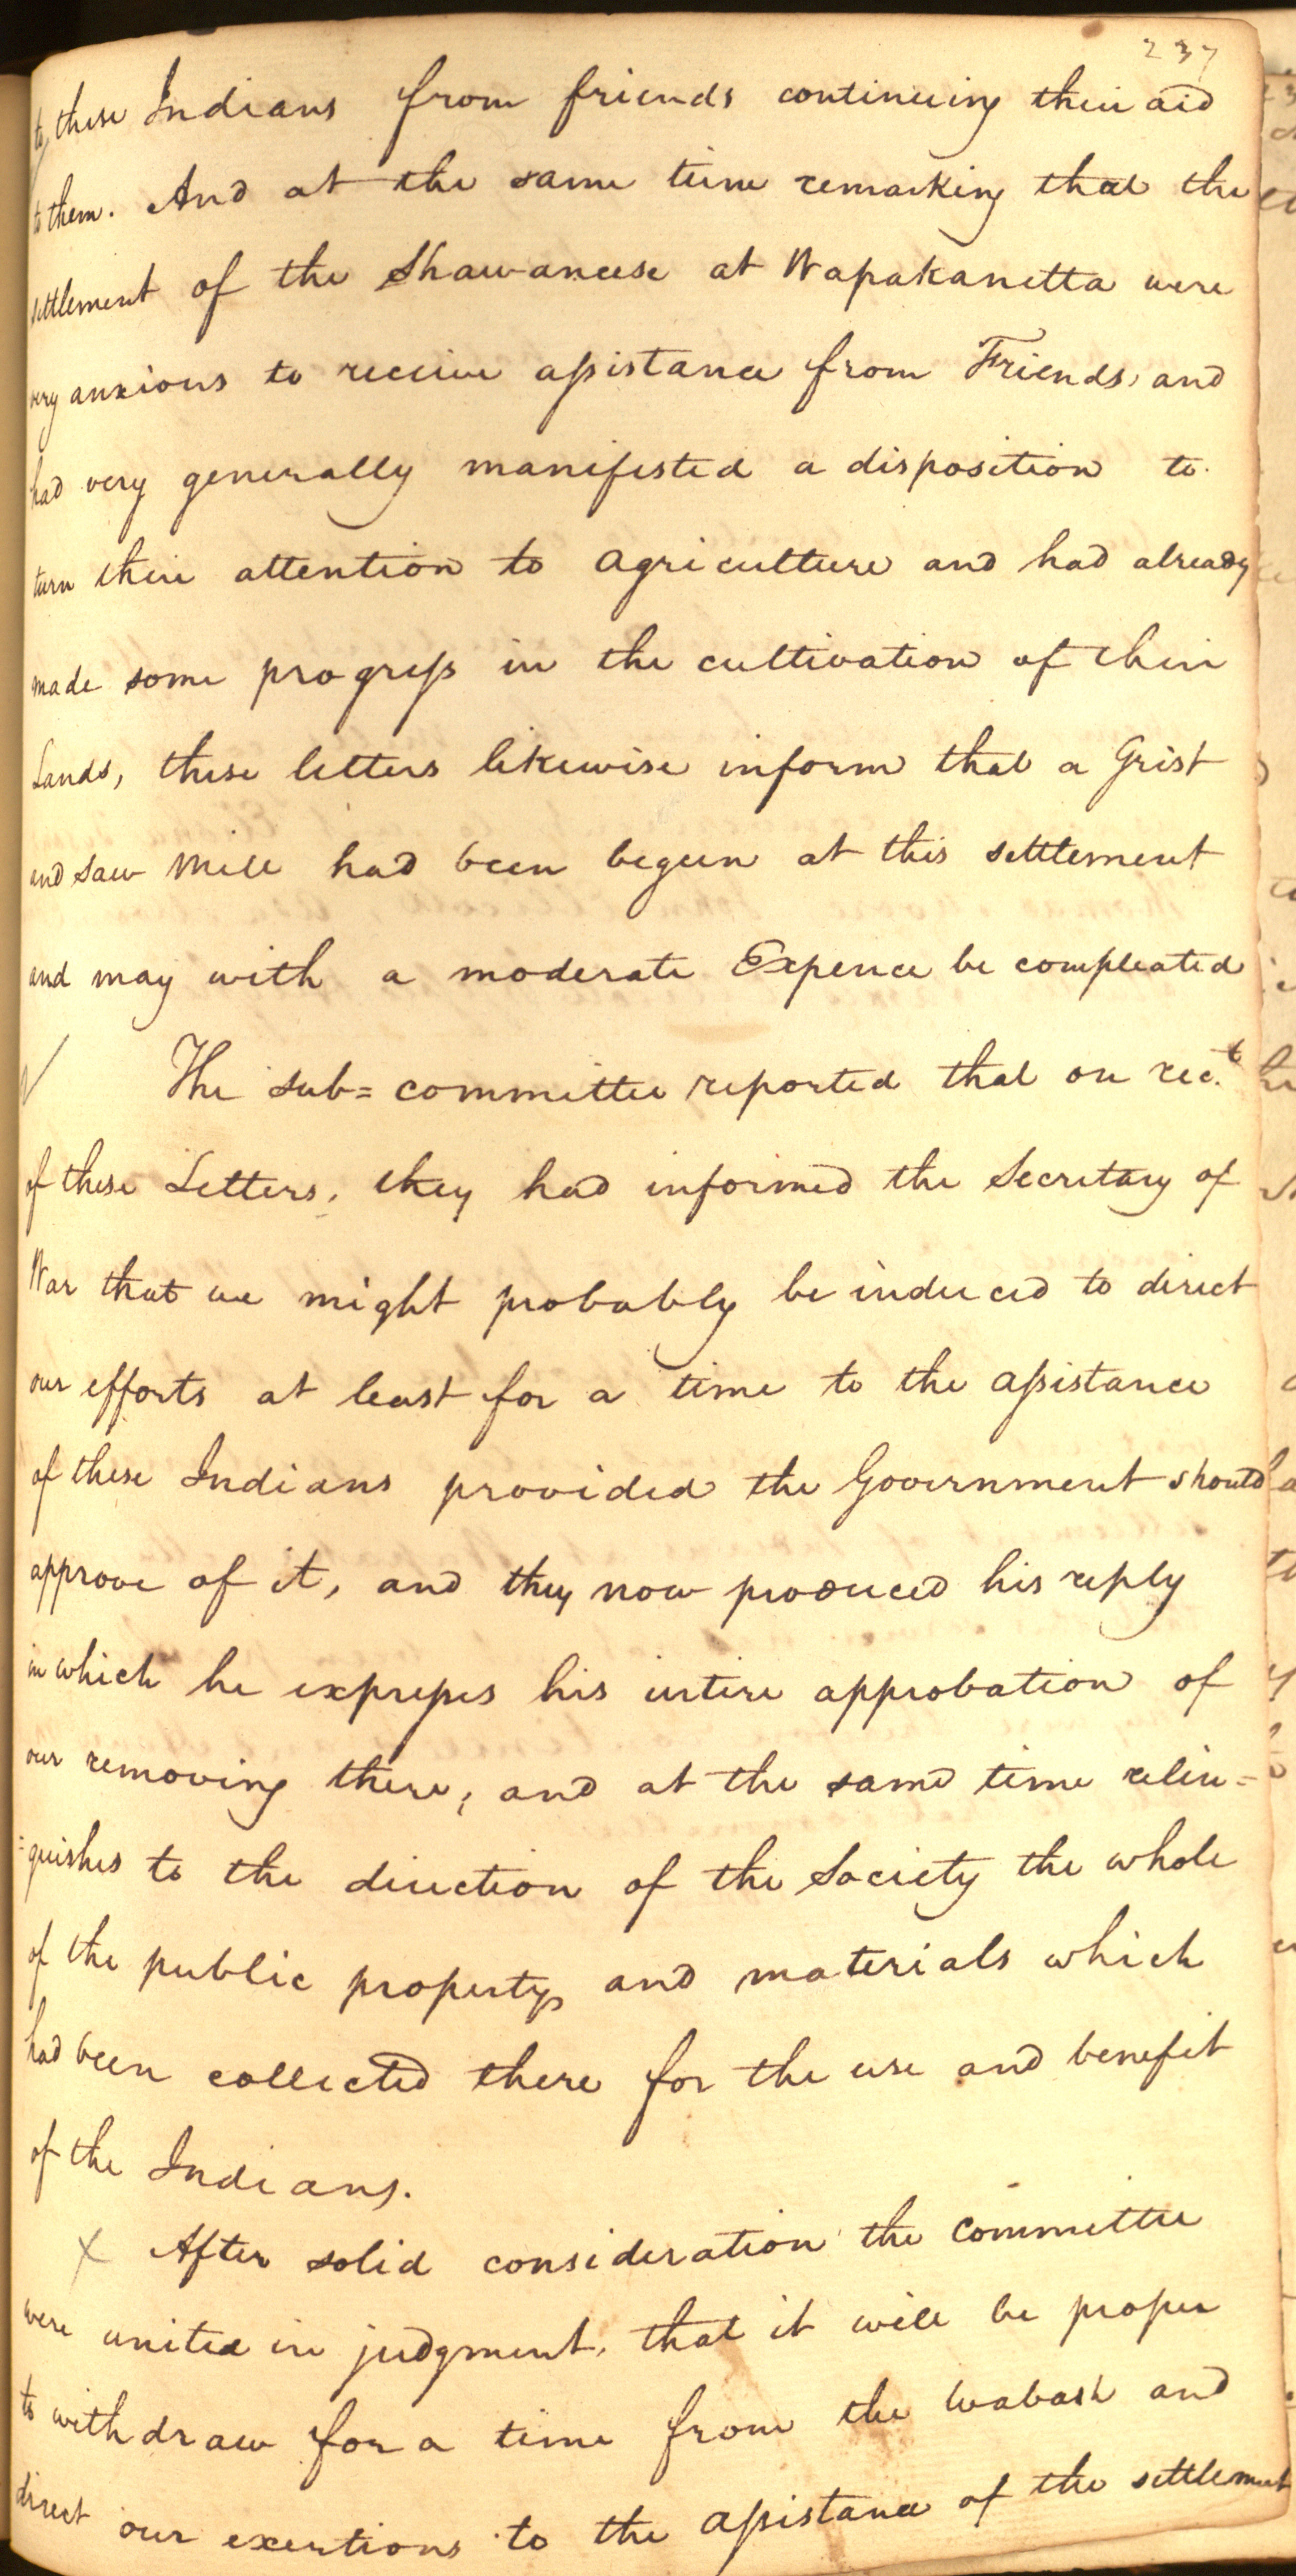 237
to these Indians from friends continuing their aid
to them. And at the same time remarking that the
settlement of the Shawaneese at Wapakanetta were
very anxious to receive assistance from Friends, and
had very generally manifested a disposition to
turn their attention to agriculture and had already
made some progress in the cultivation of their
Lands, these letters likewise inform that a Grist
and saw Mill had been begun at this settlement
and may with a moderate Expence be compleated
The sub=committee reported that on rec.t
of these Letters, they had informed the Secretary of
War that we might probably be induced to direct
our efforts at least for a time to the assistance
of these Indians provided the Government should
approve of it, and they now produced his reply
in which he expresses his intire approbation of
our removing there, and at the same time relin=
=quishes to the direction of the Society the whole
of the public property and materials which
had been collected there for the use and benefit
of the Indians.
x After solid consideration the committee
were united in judgment, that it will be proper
to withdraw for a time from the Wabash and
direct our exertions to the assistance of the settlement